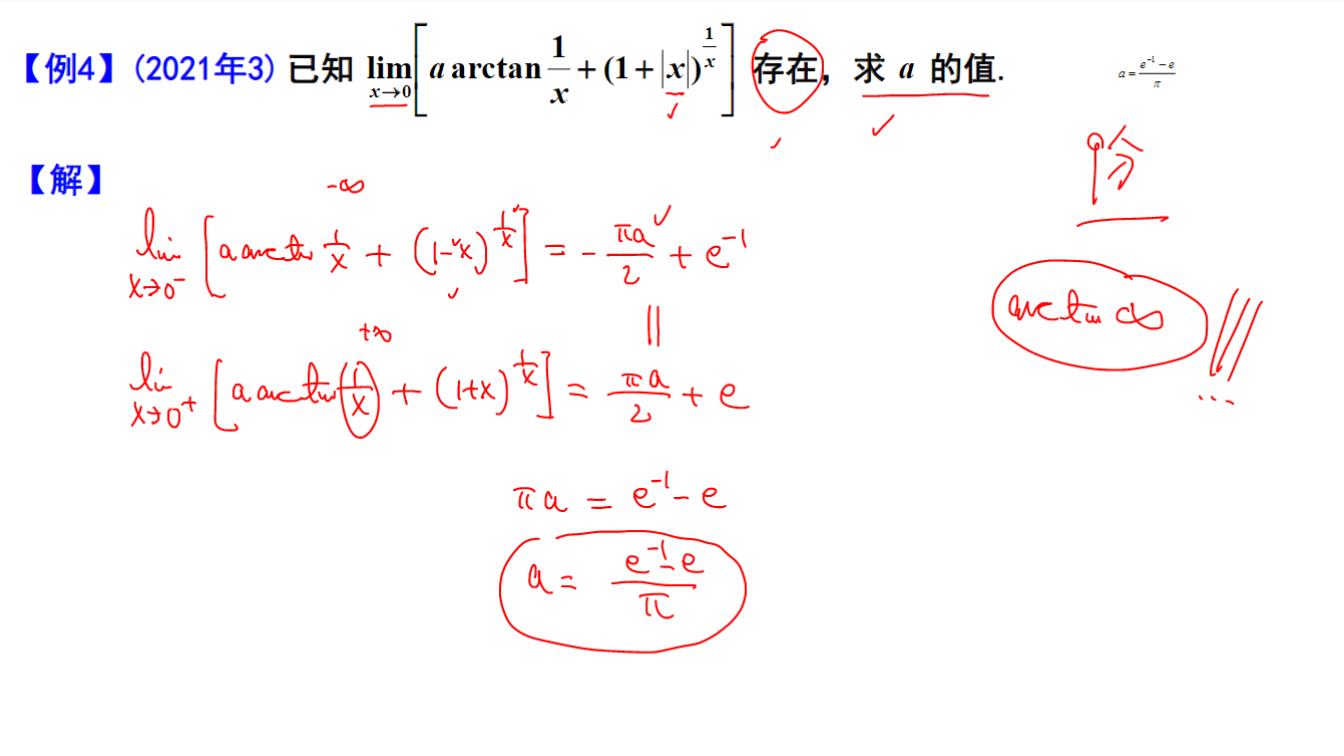 【例4】(2021年3) 已知 lim x→0 [ a arctan 1/x + (1+|x|)^(1/x) ] 存在，求 a 的值.
a = (e^-1 - e)/π
【解】
-∞
lim x→0^- [ a arctan 1/x + (1-x)^(1/x) ] = - πa/2 + e^-1
arctan ∞ !!! ...
+∞ ||
lim x→0^+ [ a arctan (1/x) + (1+x)^(1/x) ] = πa/2 + e
πa = e^-1 - e
a = (e^-1 - e)/π